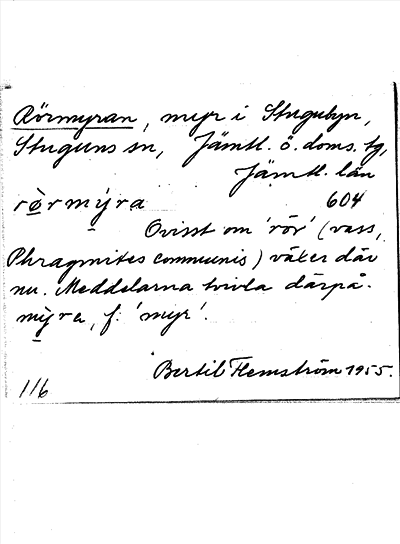 Rörmyran, myr i Stugubyn,
Stuguns sn, Jämtl. ö. doms. tg,
Jämtl. län
rö̀rmýra 604
Ovisst om 'rör' (vass,
Phragmites communis) växer där
nu. Meddelarna tvivla därpå.
mỳra, f. 'myr'.
Bertil Flemström 1955.
116